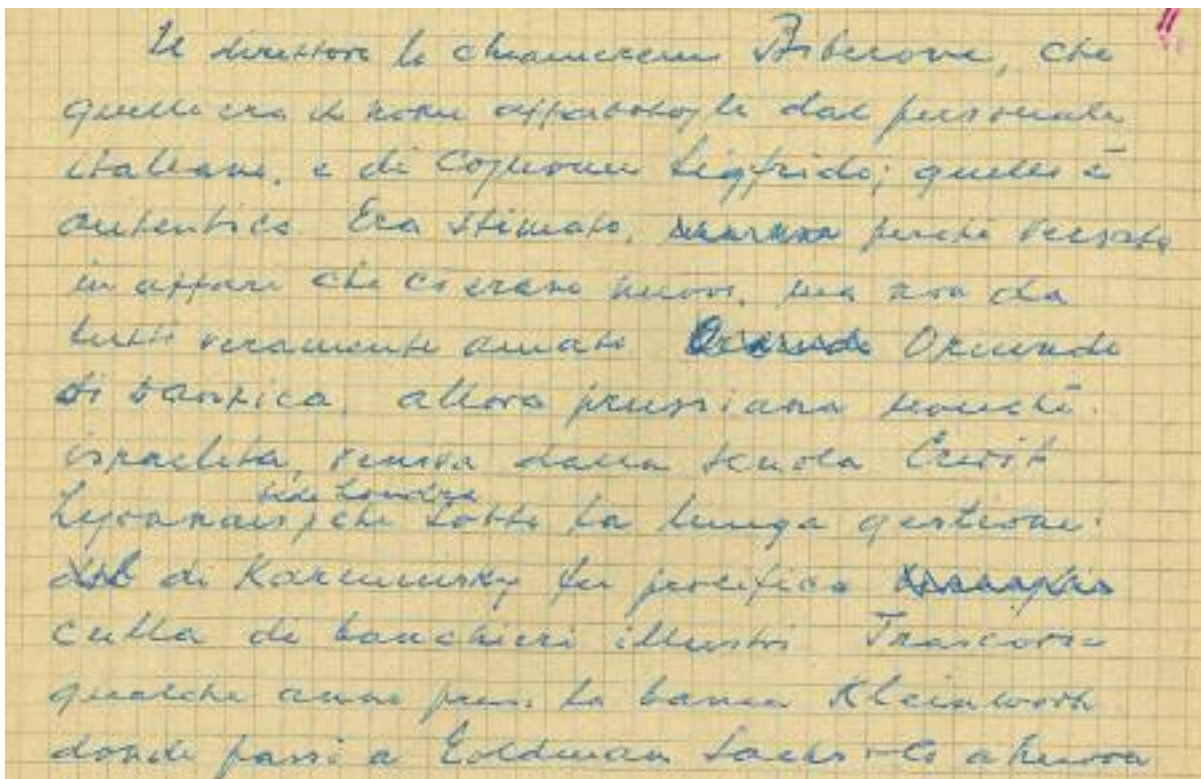 Il direttore lo chiameremo Biberone, che
quello era il nome appioppatogli dal personale
italiano, e di Cognome Sigfrido; quello è
autentico Era stimato, perché versato
in affari che ci erano nuovi, ma non da
tutti veramente amato Oriundo Oriundo
di Danzica, allora prussiana nonché
israelita, veniva dalla scuola Credit
sede Londra
Lyonnais, che sotto la lunga gestione
di Karminsky fu prolifica
culla di banchieri illustri Trascorse
qualche anno pres. la banca Kleinworth
donde passò a Goldman Sachs & Co a Nuova